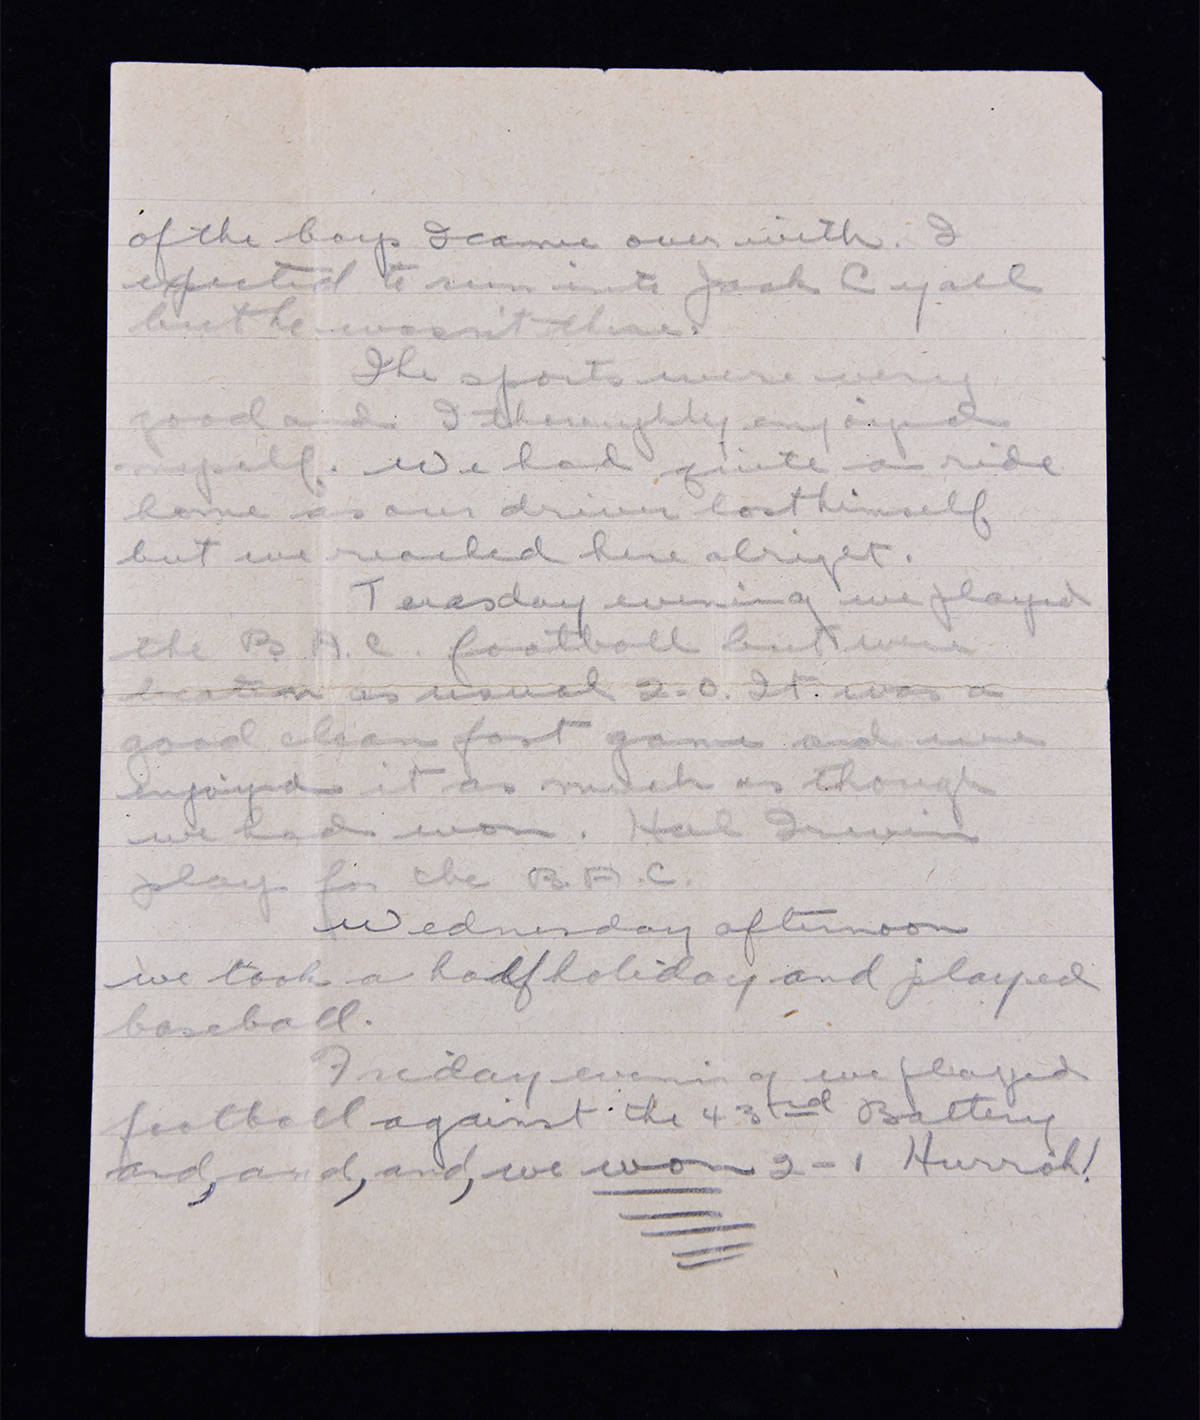 of the boys I came over with. I
expected to run into Jack Cyall
but he wasn't there.
The sports were very
good and I thoroughly enjoyed
myself. We had quite a ride
home as our driver lost himself
but we reached here alright.
Tuesday evening we played
the B.A.C. football but were
beaten as usual 2-0. It was a
good clean fast game and we
enjoyed it as much as though
we had won. Hal Irwin
play for the B.A.C.
Wednesday afternoon
we took a half holiday and played
baseball.
Friday evening we played
football against the 43rd Battery
and, and, and, we won 2-1 Hurrah!